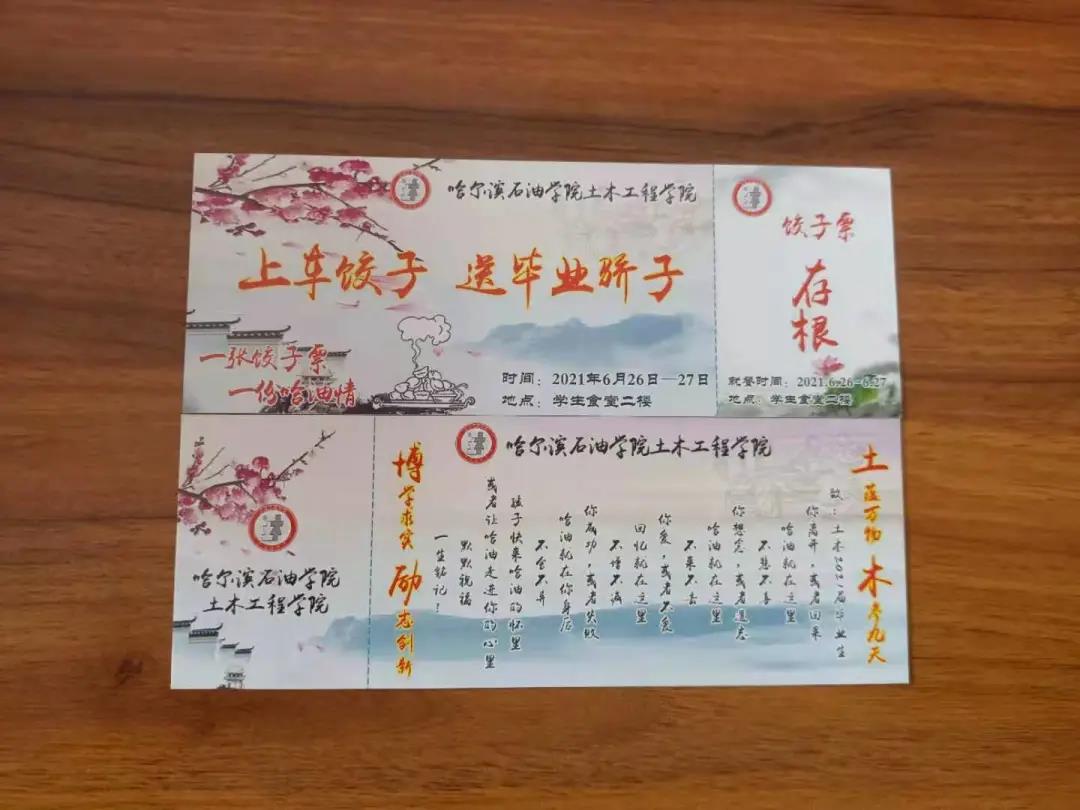 哈尔滨石油学院土木工程学院
上车饺子 送毕业骄子
一张饺子票
一份哈油情
时间：2021年6月26日—27日
地点：学生食堂二楼
饺子票
存根
就餐时间：2021.6.26-6.27
地点：学生食堂二楼
哈尔滨石油学院
土木工程学院
哈尔滨石油学院土木工程学院
土蕴万物 木参九天
致：土木2021届毕业生
你离开，或者回来
哈油就在这里
不悲不喜
你想念，或者遗忘
哈油就在这里
不来不去
你爱，或者不爱
回忆就在这里
不增不减
你成功，或者失败
哈油就在你身后
不舍不弃
孩子快来哈油的怀里
或者让哈油走进你的心里
默默祝福
一生铭记！
博学求实 励志创新